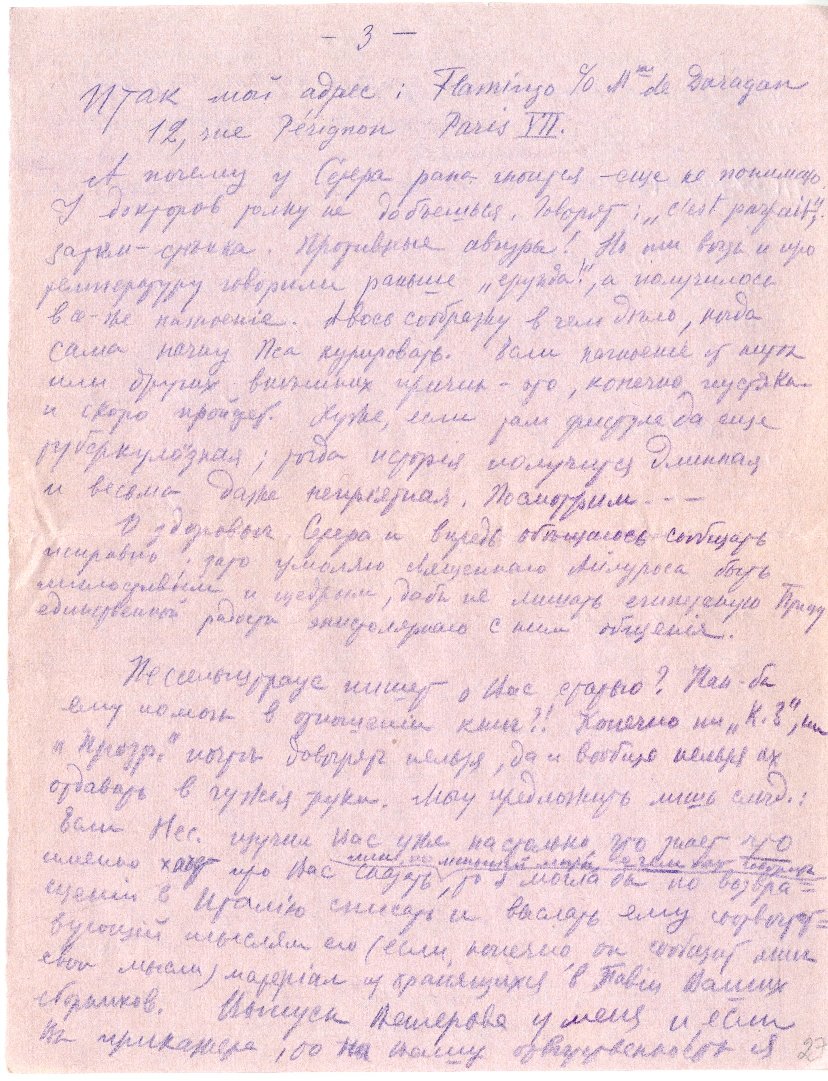 – 3 –
Итак мой адрес: Flamingo c/o Mme de Daragan
12, rue Pérignon Paris VII.
А почему у Сфера рана гноится – еще не понимаю.
У докторов толку не добьешься. Говорят: „c'est parfait";
затем – стенка. Противные авгуры! Но они ведь и про
температуру говорили раньше „ерунда!", а получилось
все-же нагноенiе. Авось соображу в чем дѣло, когда
сама начну Пса курировать. Если нагноенiе от
или других внѣшних причин – это, конечно, пустяки
и скоро пройдет. Хуже, если там фистула да еще
туберкулёзная; тогда исторiя получится длинная
и весьма даже непрiятная. Посмотрим - - -
О здоровьи Сфера и впредь обѣщаюсь сообщать
исправно; зато умоляю священнаго Айлуроса быть
милостивым и щедрым, дабы не лишать египетскую Птицу
единственной радости эпистолярнаго с ним общенiя.
Нессельштраус пишет о Вас статью? Как-бы
ему помочь в отношенiи книг?! Конечно ни „К.З", ни
„Прозр." почтѣ довѣрять нельзя, да и вообще нельзя их
отдавать в чужiя руки. Могу предложить лишь слѣд.:
Если Нес. изучил Вас уже настолько что знает что
именно хочет про Вас сказать, то я могла бы по возвра-
или, по меньшей мѣрѣ, о чем
щенiи в Италiю списать и выслать ему соотвѣтст-
вующiй мыслям его (если, конечно он сообщит мнѣ
свои мысли) матерiал из хранящихся в Павiи Ваших
сборников. Выпуск Венгерова у меня и если
Вы прикажете, то на Вашу отвѣтственность я
27